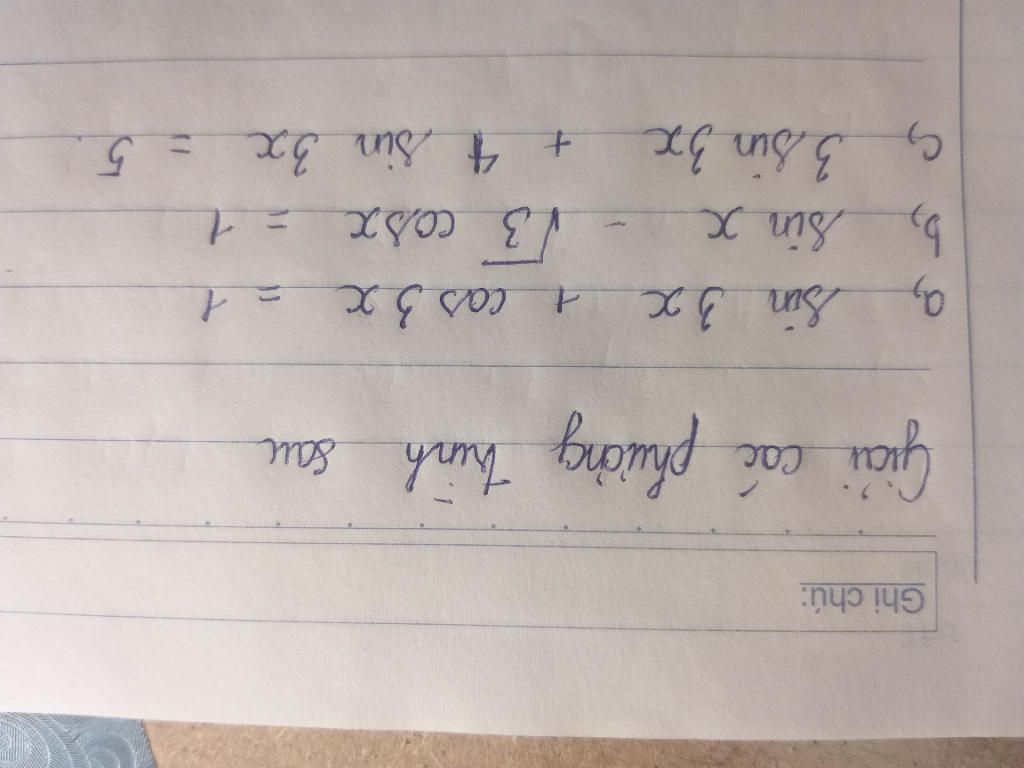 Ghi chú:
Giải các phương trình sau
a, sin 3x + cos 3x = 1
b, sin x - √3 cos x = 1
c, 3 sin 3x + 4 sin 3x = 5.